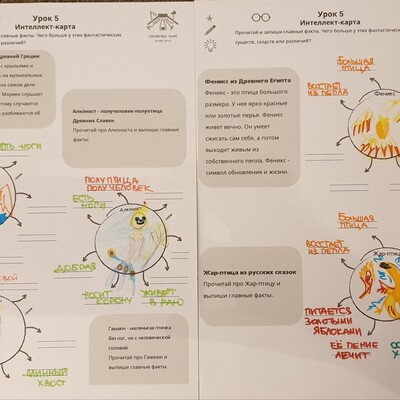 Урок 5
Интеллект-карта
главные факты. Чего больше у этих фантастических
различий?
Древней Греции
с крыльями и
на музыкальных
на самом деле
Моряки слушают
этому случаются
разбиваются об
Алконост - получеловек-полуптица
Древних Славян
Прочитай про Алконоста и выпиши главные
факты.
ПОЛУПТИЦА
ПОЛУЧЕЛОВЕК
ЕСТЬ
НОГИ
НОГИ
Алконост
ДОБРАЯ
НОСИТ
КОРОНУ
ЖИВЁТ
В РАЮ
Гамаюн - маленькая птичка
без ног, но с человеческой
головой.
Прочитай про Гамаюн и
выпиши главные факты.
ДЛИННЫЙ
ХВОСТ
Урок 5
Интеллект-карта
Прочитай и запиши главные факты. Чего больше у этих фантастических
существ, сходств или различий?
БОЛЬШАЯ
ПТИЦА
ВОССТАЁТ
ИЗ ПЕПЛА
Феникс
Феникс из Древнего Египта
Феникс - это птица большого
размера. У нее ярко-красные
или золотые перья. Феникс
живет вечно. Он умеет
сжигать сам себя, а потом
выходит живым из
собственного пепла. Феникс -
символ обновления и жизни.
БОЛЬШАЯ
ПТИЦА
ВОССТАЁТ
ИЗ ПЕПЛА
Жар-птица
Жар-птица из русских сказок
Прочитай про Жар-птицу и
выпиши главные факты.
ПИТАЕТСЯ
ЗОЛОТЫМИ
ЯБЛОКАМИ
ЕЁ ПЕНИЕ
ЛЕЧИТ